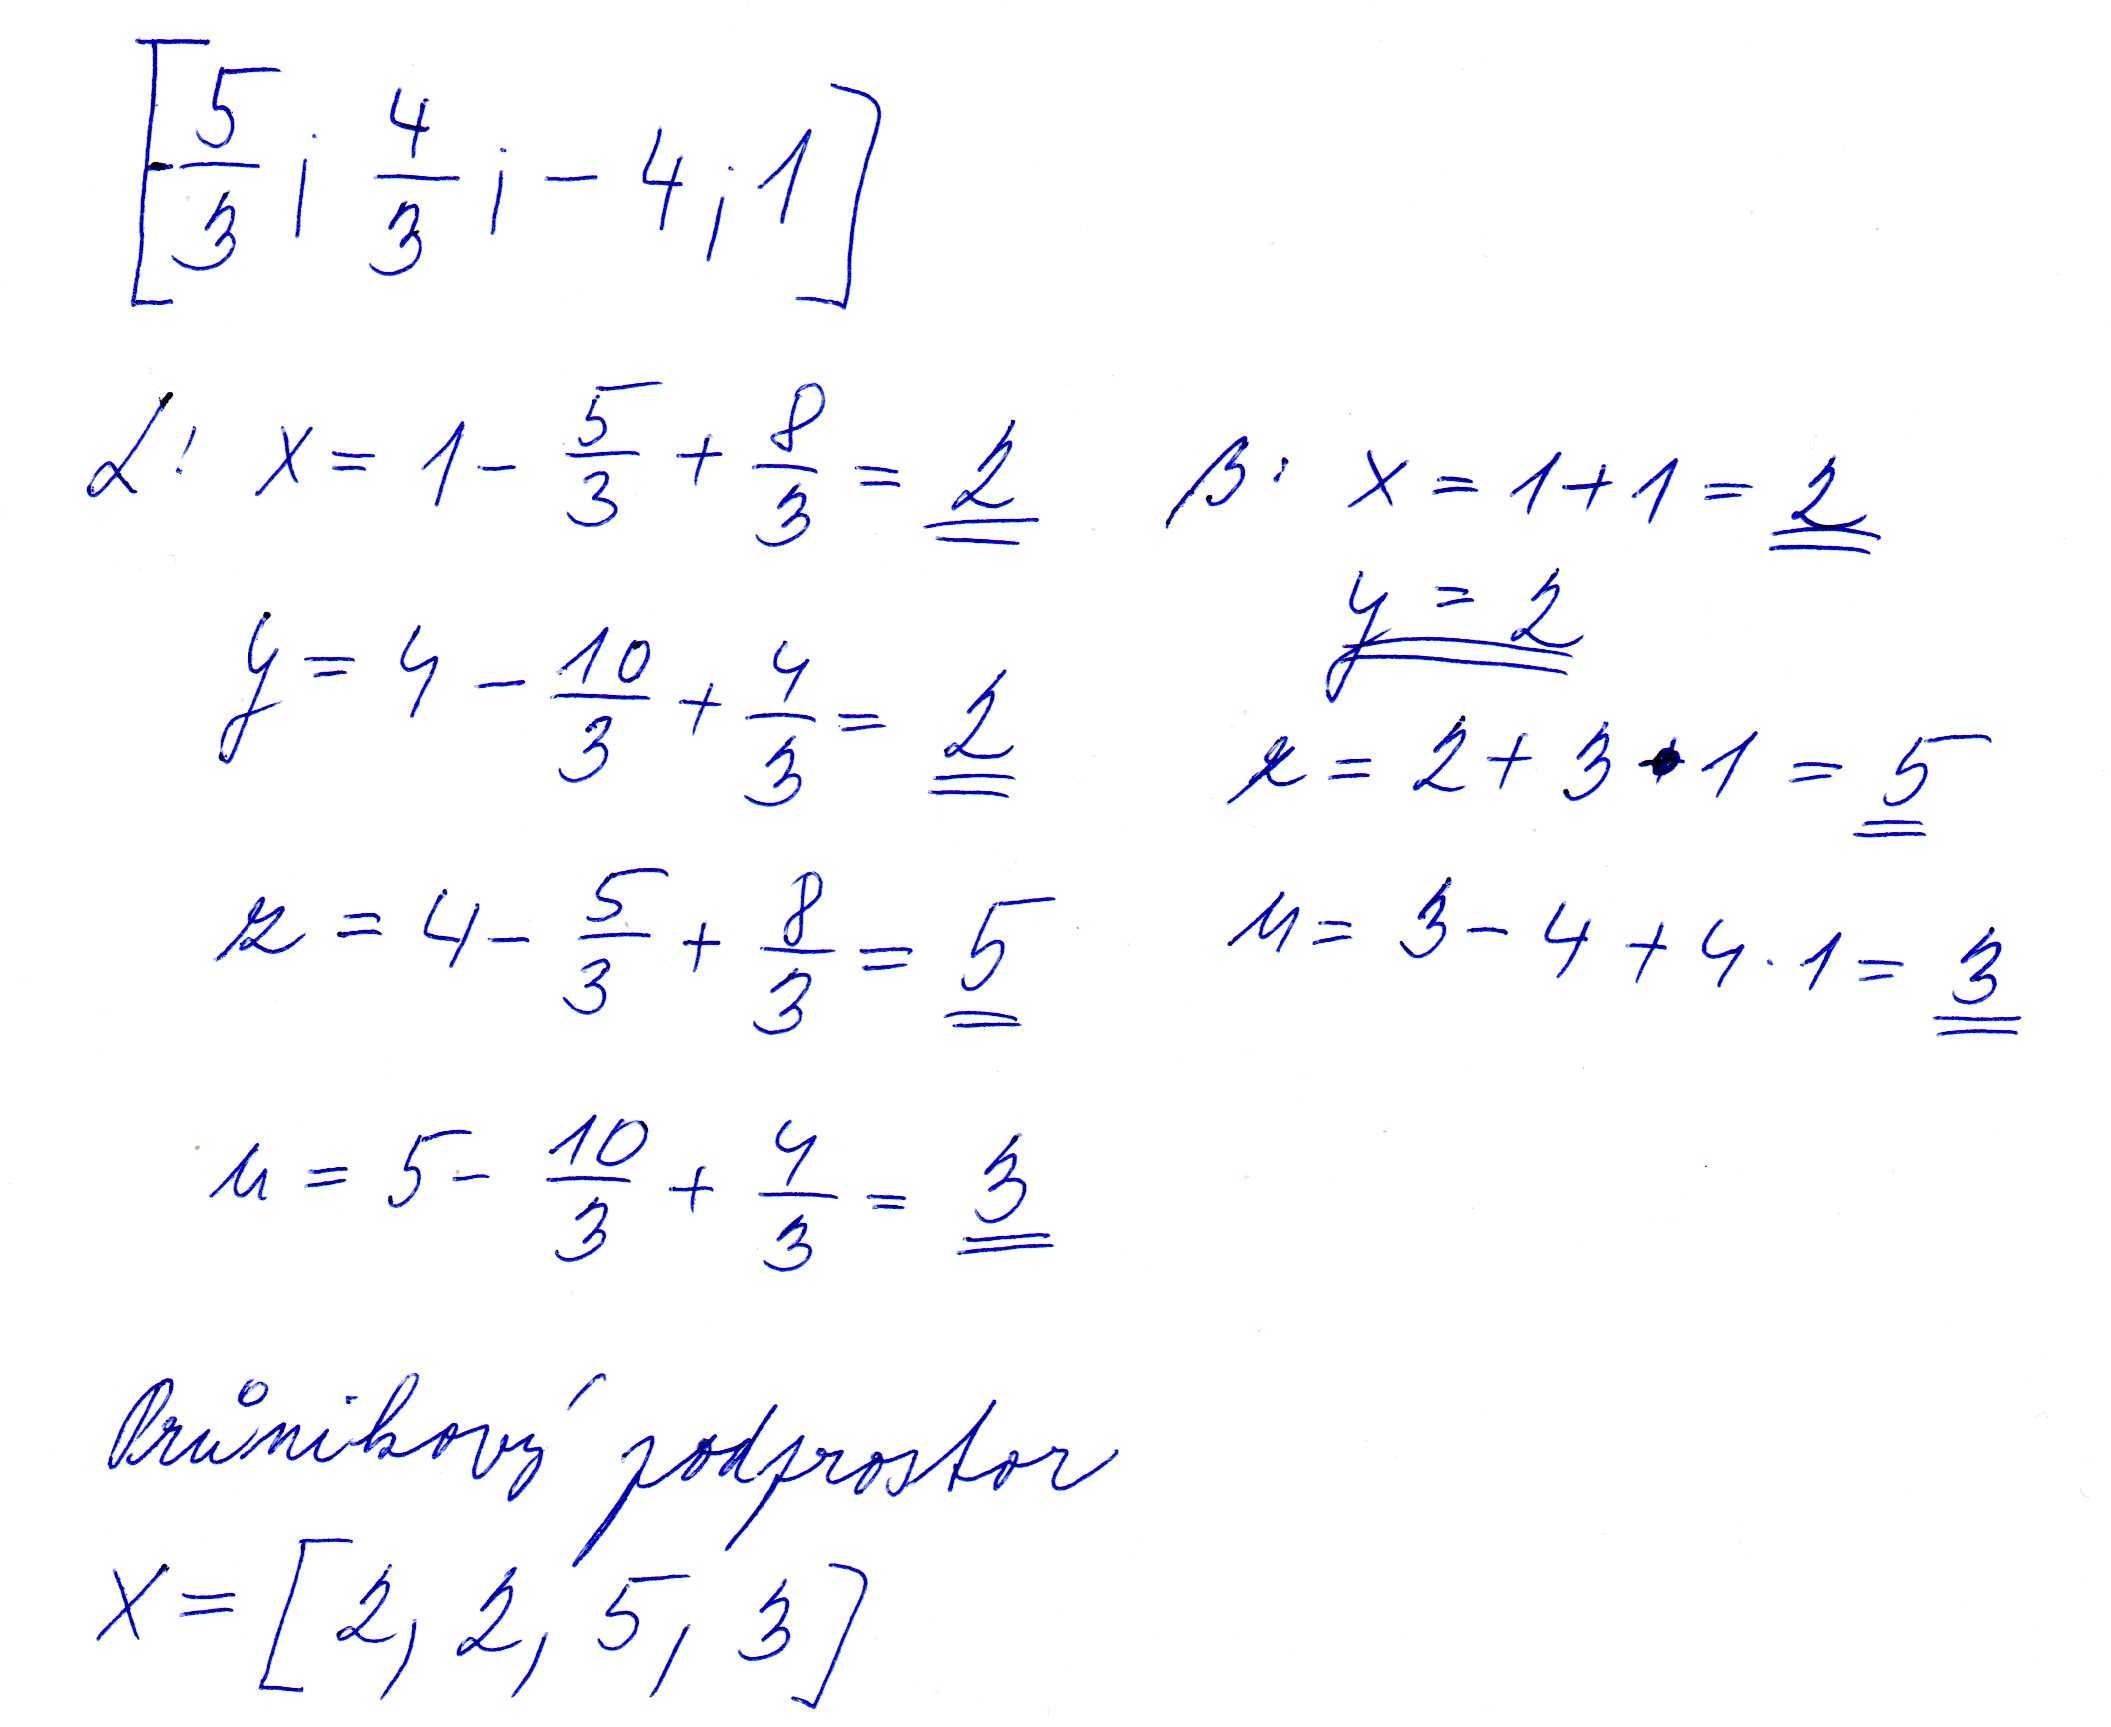 [-5/3; 4/3; -4; 1]
α: x = 1 - 5/3 + 8/3 = 2
y = 4 - 10/3 + 4/3 = 2
z = 4 - 5/3 + 8/3 = 5
u = 5 - 10/3 + 4/3 = 3
β: x = 1 + 1 = 2
y = 2
z = 2 + 3 · 1 = 5
u = 3 - 4 + 4 · 1 = 3
Průnikový podprostor
X = [2, 2, 5, 3]